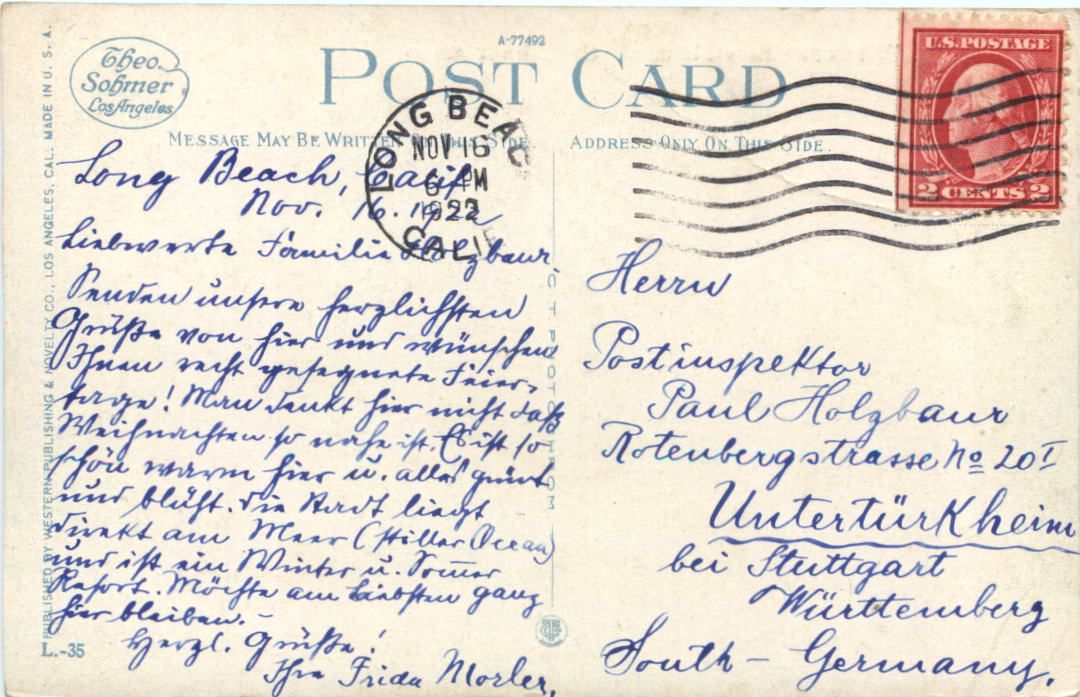 Theo.
Sohmer
Los Angeles
A-77492
POST CARD
MESSAGE MAY BE WRITTEN ON THIS SIDE.
ADDRESS ONLY ON THIS SIDE.
LONG BEACH
NOV 16
6 PM
1922
CALIF
U.S. POSTAGE
2 CENTS 2
PUBLISHED BY WESTERN PUBLISHING & NOVELTY CO., LOS ANGELES, CAL. MADE IN U. S. A.
Long Beach, Calif.
Nov. 16. 1922
Liebwerte Familie Holzbaur.
Senden unsere herzlichsten
Grüße von hier und wünschen
Ihnen recht gesegnete Feier-
tage! Man denkt hier nicht daß
Weihnachten so nahe ist. Es ist so
schön warm hier u. alles grünt
und blüht. Die Stadt liegt
direkt am Meer (stiller Ocean)
und ist ein Winter u. Somer
Resort. Möchte am Liebsten ganz
hier bleiben. -
Herzl. Grüße!
Ihre Frida Morler.
L.-35
Herrn
Postinspektor
Paul Holzbaur
Rotenbergstrasse No 20 I
Untertürkheim
bei Stuttgart
Württemberg
South - Germany.